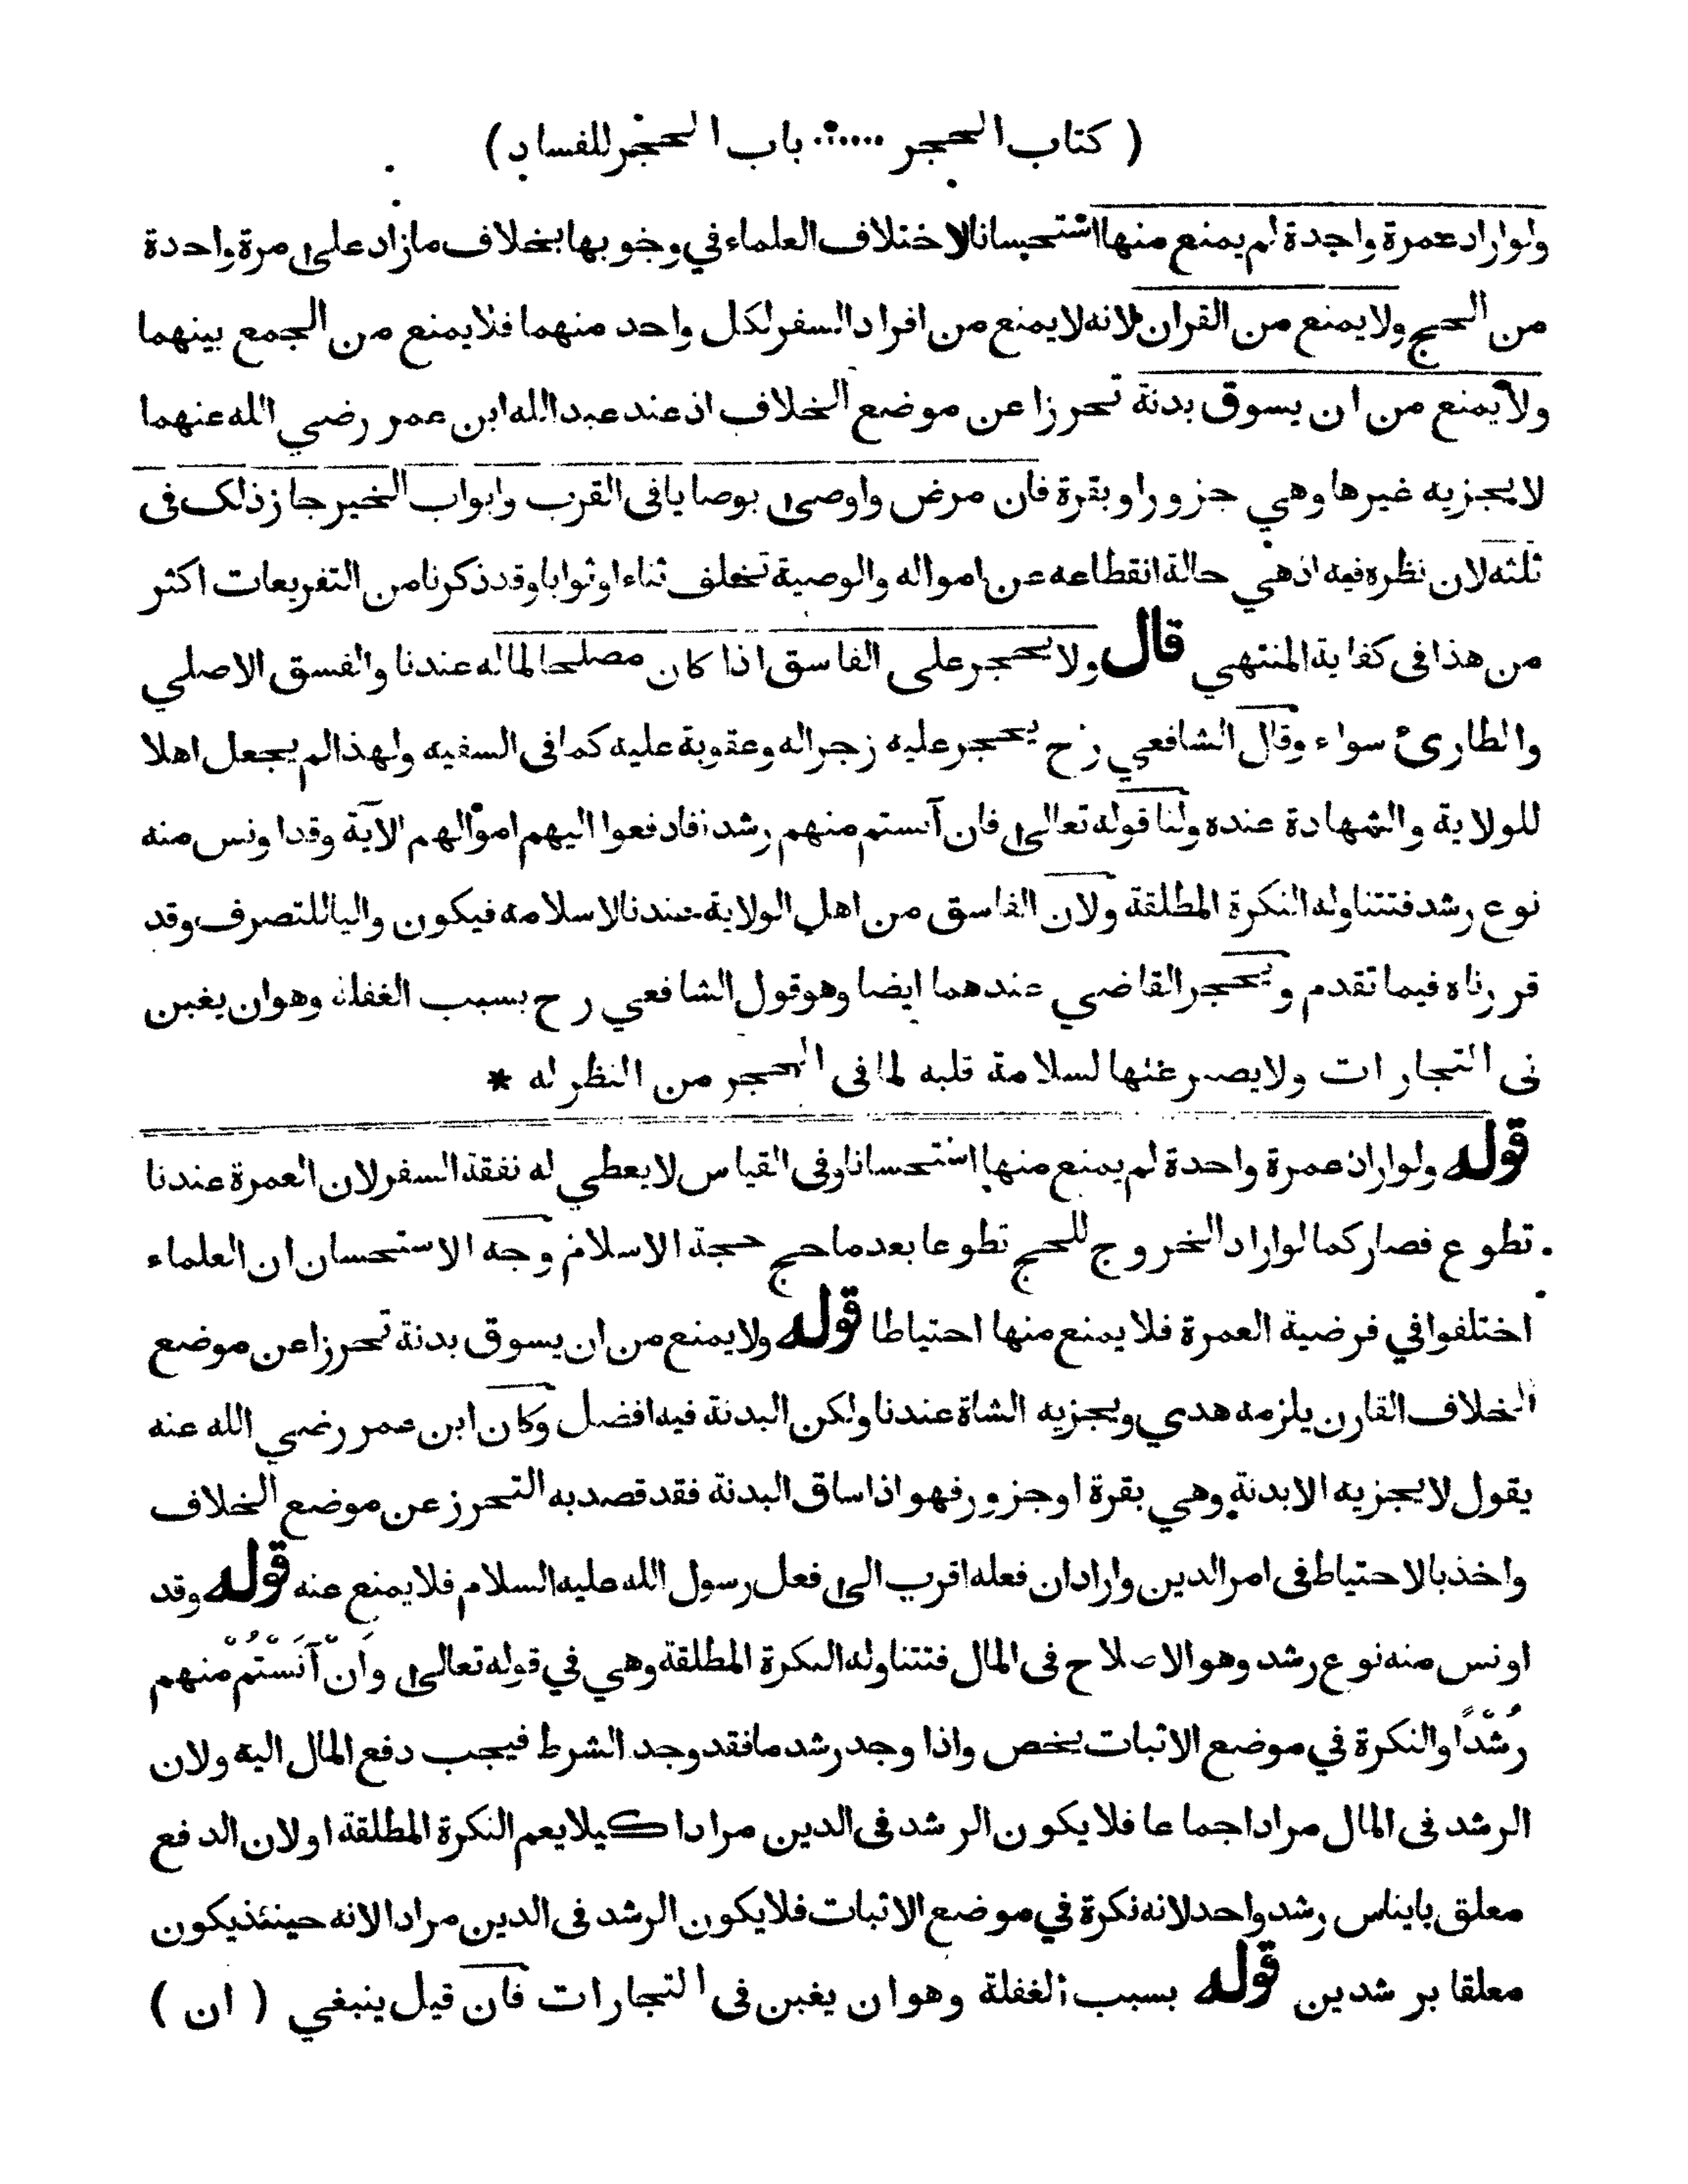 ( كتاب الحجر ..... باب الحجر للفساد )
ولو اراد عمرة واحدة لم يمنع منها استحسانا لاختلاف العلماء في وجوبها بخلاف ما زاد على مرة واحدة
من الحج ولا يمنع من القران لانه لا يمنع من افراد السفر لكل واحد منهما فلا يمنع من الجمع بينهما
ولا يمنع من ان يسوق بدنة تحرزا عن موضع الخلاف اذ عند عبد الله ابن عمر رضي الله عنهما
لا يجزيه غيرها وهي جزور او بقرة فان مرض واوصى بوصايا فى القرب وابواب الخير جاز ذلك فى
ثلثه لان نظره فيه اذ هي حالة انقطاعه عن امواله والوصية تخلف ثناء او ثوابا وقد ذكرنا من التفريعات اكثر
من هذا فى كفاية المنتهي قال ولا يحجر على الفاسق اذا كان مصلحا لماله عندنا والفسق الاصلي
والطارئ سواء وقال الشافعي رح يحجر عليه زجرا له وعقوبة عليه كما فى السفيه ولهذا لم يجعل اهلا
للولاية والشهادة عنده ولنا قوله تعالى فان آنستم منهم رشدا فادفعوا اليهم اموالهم الآية وقد اونس منه
نوع رشد فتتناوله النكرة المطلقة ولان الفاسق من اهل الولاية عندنا لاسلامه فيكون واليا للتصرف وقد
قررناه فيما تقدم ويحجر القاضي عندهما ايضا وهو قول الشافعي رح بسبب الغفلة وهو ان يغبن
فى التجارات ولا يصبر عنها لسلامة قلبه لما فى الحجر من النظر له *
قوله ولو اراد عمرة واحدة لم يمنع منها استحسانا وفى القياس لا يعطي له نفقة السفر لان العمرة عندنا
تطوع فصار كما لو اراد الخروج للحج تطوعا بعد ما حج حجة الاسلام وجه الاستحسان ان العلماء
اختلفوا في فرضية العمرة فلا يمنع منها احتياطا قوله ولا يمنع من ان يسوق بدنة تحرزا عن موضع
الخلاف القارن يلزمه هدي ويجزيه الشاة عندنا ولكن البدنة فيه افضل وكان ابن عمر رضي الله عنه
يقول لا يجزيه الا بدنة وهي بقرة او جزور فهو اذا ساق البدنة فقد قصد به التحرز عن موضع الخلاف
واخذ بالاحتياط فى امر الدين واراد ان فعله اقرب الى فعل رسول الله عليه السلام فلا يمنع عنه قوله وقد
اونس منه نوع رشد وهو الاصلاح فى المال فتتناوله النكرة المطلقة وهي في قوله تعالى وَانْ آنَسْتُمْ منهم
رُشْدًا والنكرة في موضع الاثبات يخص واذا وجد رشد ما فقد وجد الشرط فيجب دفع المال اليه ولان
الرشد فى المال مراد اجماعا فلا يكون الرشد فى الدين مرادا كيلا يعم النكرة المطلقة او لان الدفع
معلق بايناس رشد واحد لانه نكرة في موضع الاثبات فلا يكون الرشد فى الدين مرادا لانه حينئذ يكون
معلقا برشدين قوله بسبب الغفلة وهو ان يغبن فى التجارات فان قيل ينبغي ( ان )